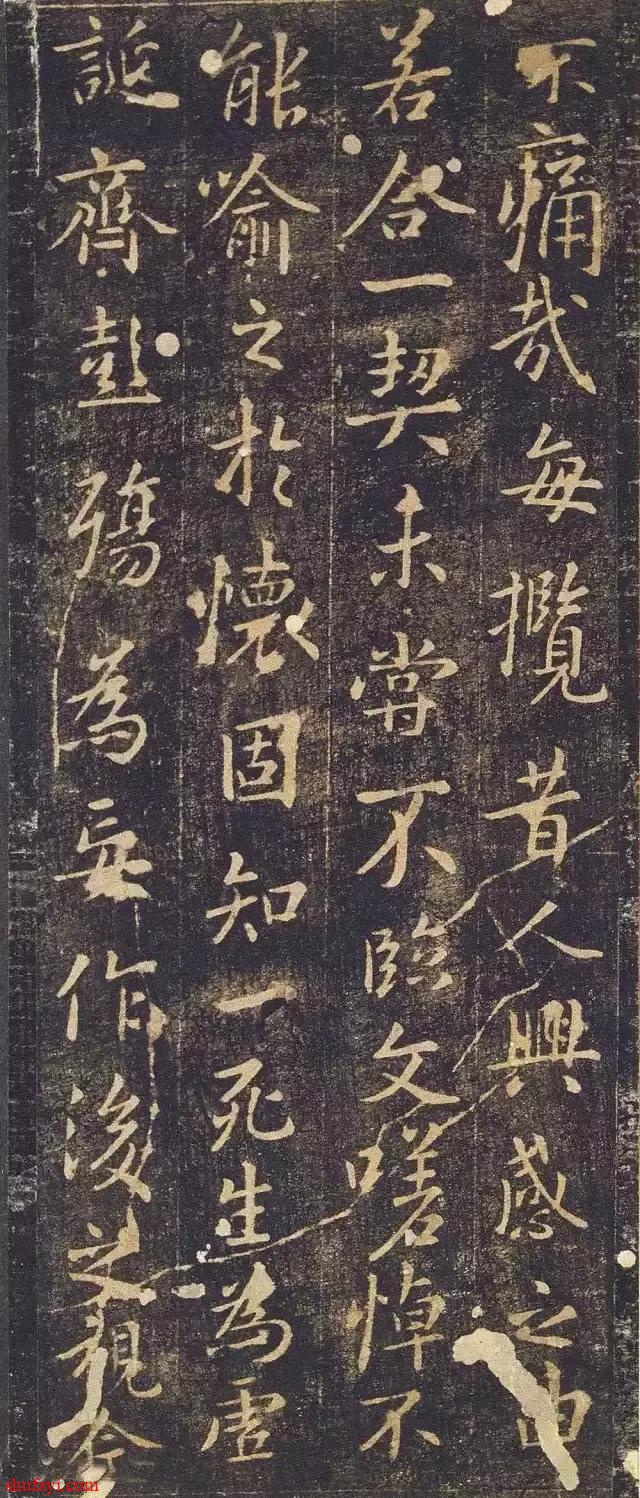 不痛哉每攬昔人興感之由
若合一契未嘗不臨文嗟悼不
能喻之於懷固知一死生為虛
誕齊彭殤為妄作後之視今
shufayi.com